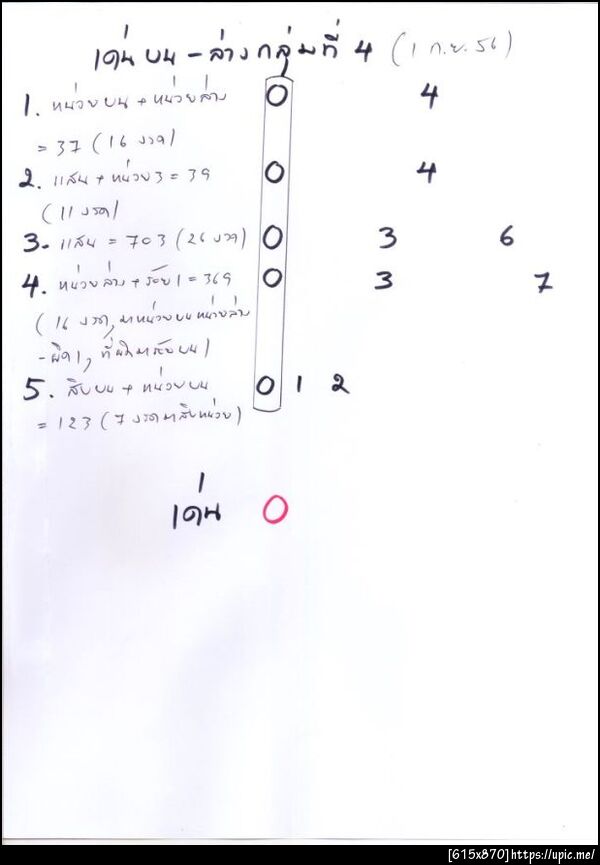 เด่นบน - ล่างกลุ่มที่ 4 (1 ก.ย. 56)
1. หน่วยบน + หน่วยล่าง 0 4
= 37 (16 งวด)
2. แสน + หน่วย3 = 39 0 4
(11 งวด)
3. แสน = 703 (26 งวด) 0 3 6
4. หน่วยล่าง + ร้อย1 = 369 0 3 7
(16 งวด, มาหน่วยบนหน่วยล่าง
- ผิด1, ที่ผิดมาสิบบน)
5. สิบบน + หน่วยบน 0 1 2
= 123 (7 งวดมาสิบหน่วย)
เด่น 0
[615x870]https://upic.me/